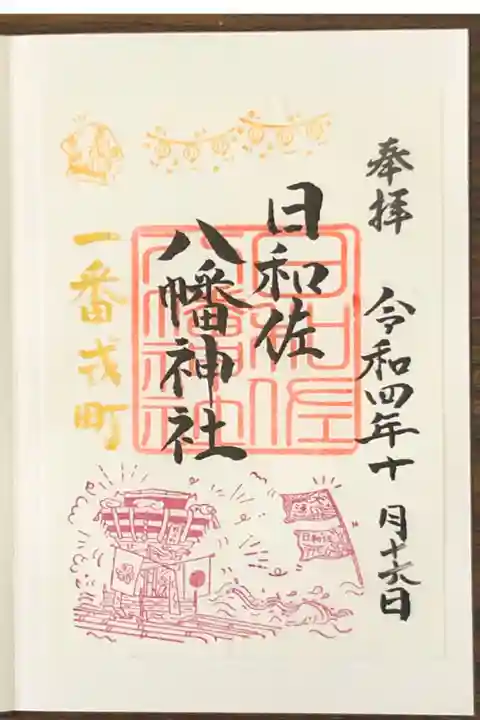 奉拝 令和四年十月十六日
日和佐
八幡神社
一番戎町
日和佐
八幡神社
日和佐